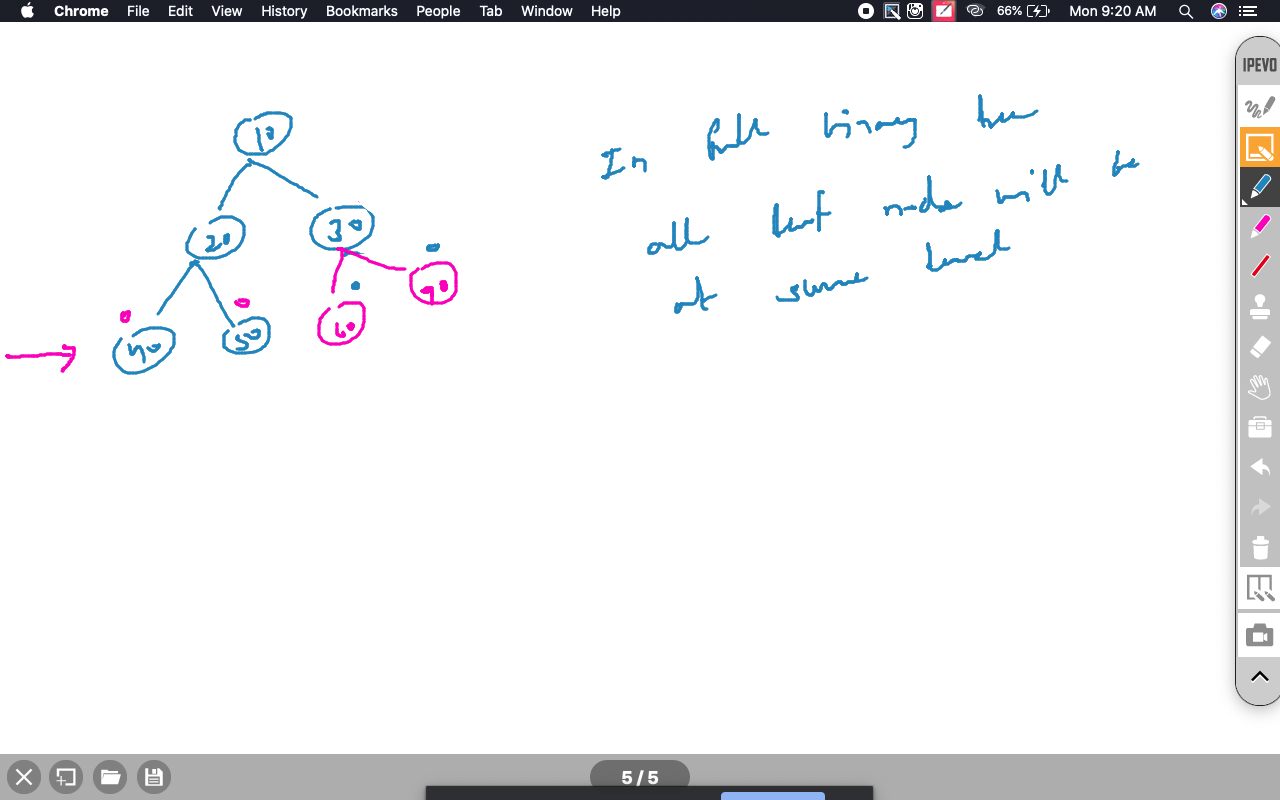 Chrome File Edit View History Bookmarks People Tab Window Help 66% Mon 9:20 AM
IPEVO
10
In full binary tree
20 30
all leaf nodes will be
90
at same level
40 50 60
5 / 5